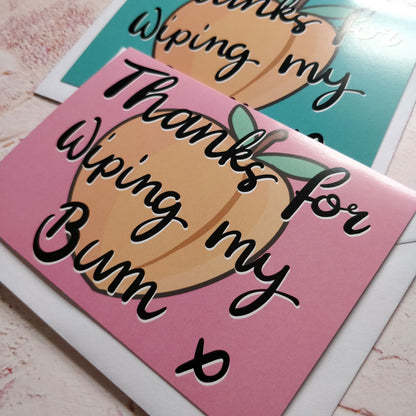 Thanks for
Wiping my
Thanks for
Wiping my
Bum
x